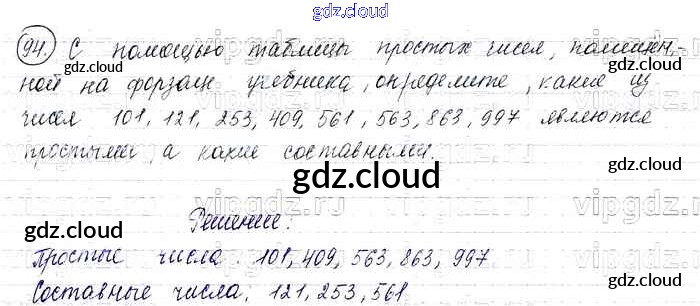 gdz.cloud
94. С помощью таблицы простых чисел, помещен-
ной на форзаце учебника, определите, какие из
чисел 101, 121, 253, 409, 561, 563, 863, 997 являются
простыми, а какие составными.
Решение:
Простые числа: 101, 409, 563, 863, 997
Составные числа: 121, 253, 561.
gdz.cloud
gdz.cloud
gdz.cloud
gdz.cloud
gdz.cloud
gdz.cloud
gdz.cloud